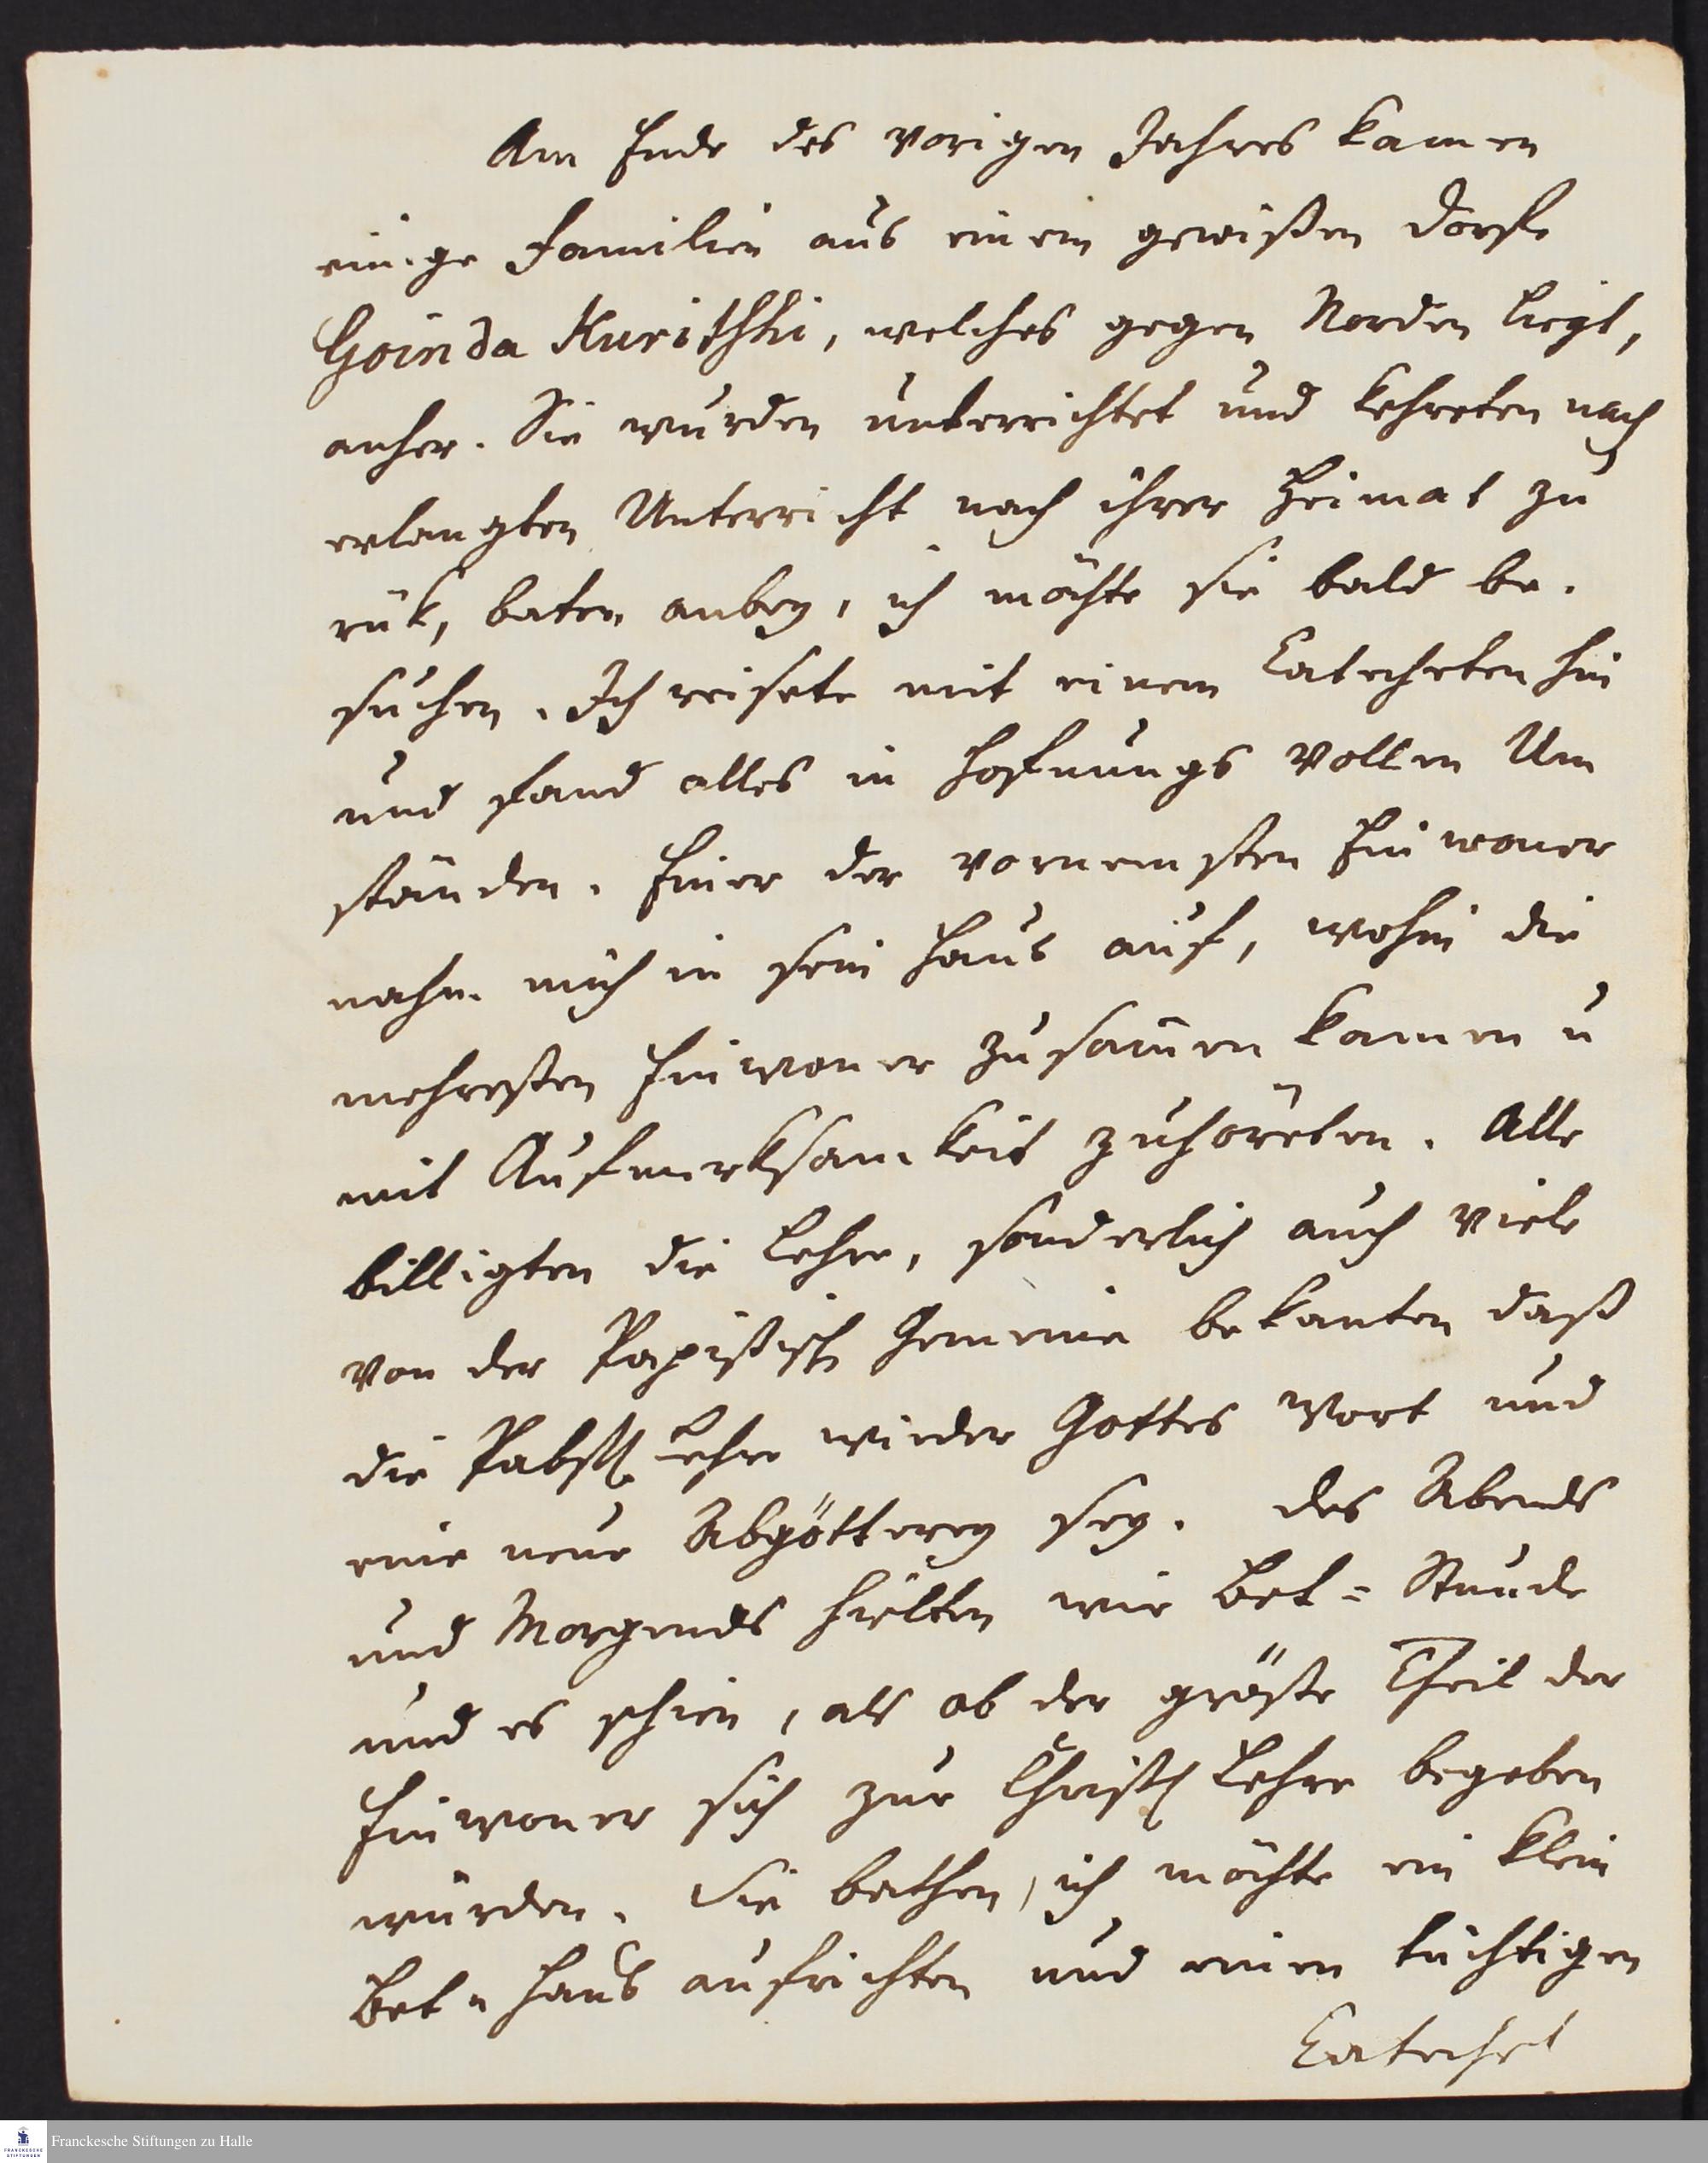 Am Ende des vorigen Jahres kamen
einige Familien aus einem gewißen Dorfe
Goinda Kuritshi, welches gegen Norden liegt,
anher. Sie wurden unterrichtet und kehreten nach
erlangten Unterricht nach ihrer Heimat zu
rük, baten anbey, ich möchte sie bald be-
suchen. Ich reisete mit einem Catecheten hin
und fand alles in hofnungs vollen Um
ständen. Einer der vornemsten Einwoner
nahm mich in sein Haus auf, wohin die
mehresten Einwoner zusam̄en kamen u
mit Aufmerksamkeit zuhöreten. Alle
billigten die Lehre, sonderlich auch viele
von der Papistisch Gemeine bekanten daß
die Pabstl. Lehre wieder Gottes Wort und
eine neue Abgötterey sey. Des Abends
und Morgends hielten wir Bet=Stunde
und es schien, als ob der gröste Theil der
Einwoner sich zur Christl Lehre begeben
würden. Sie bathen, ich möchte ein klein
Bet=Haus aufrichten und einen tüchtigen
Catechet
Franckesche Stiftungen zu Halle